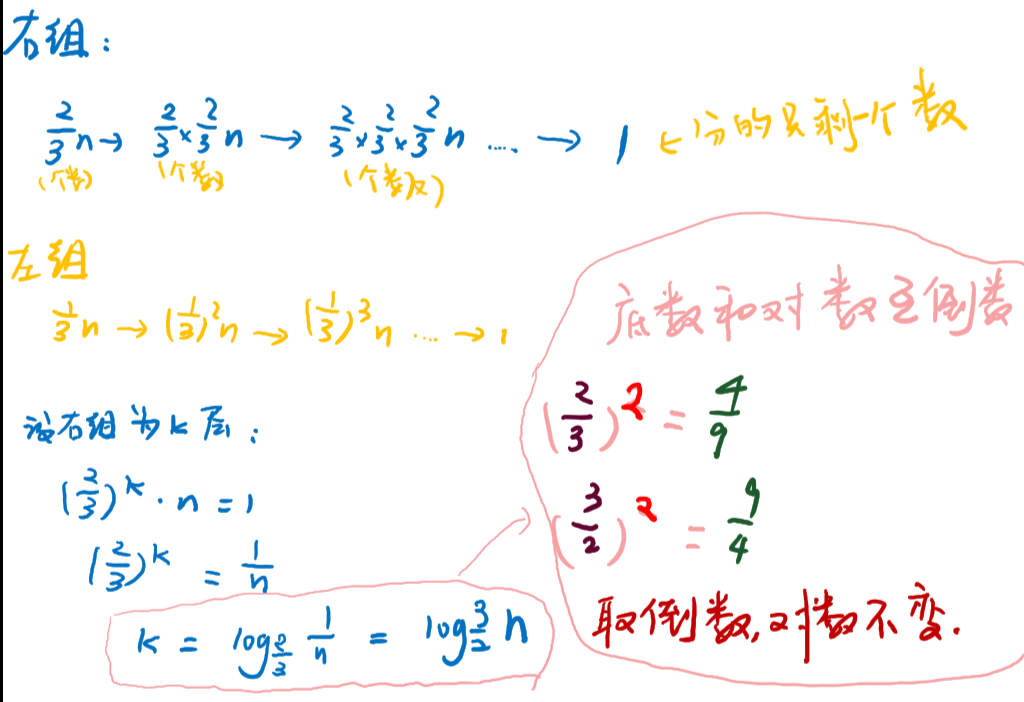 右组：
2/3 n → 2/3 × 2/3 n → 2/3 × 2/3 × 2/3 n …. → 1 ← 分的只剩一个数
(个数) (个数) (个数)
左组
1/3 n → (1/3)²n → (1/3)³n …. → 1
设右组为k层：
(2/3)^k · n = 1
(2/3)^k = 1/n
k = log_{2/3} 1/n = log_{3/2} n
底数和对数互倒数
(2/3)² = 4/9
(3/2)² = 9/4
取倒数,对数不变.